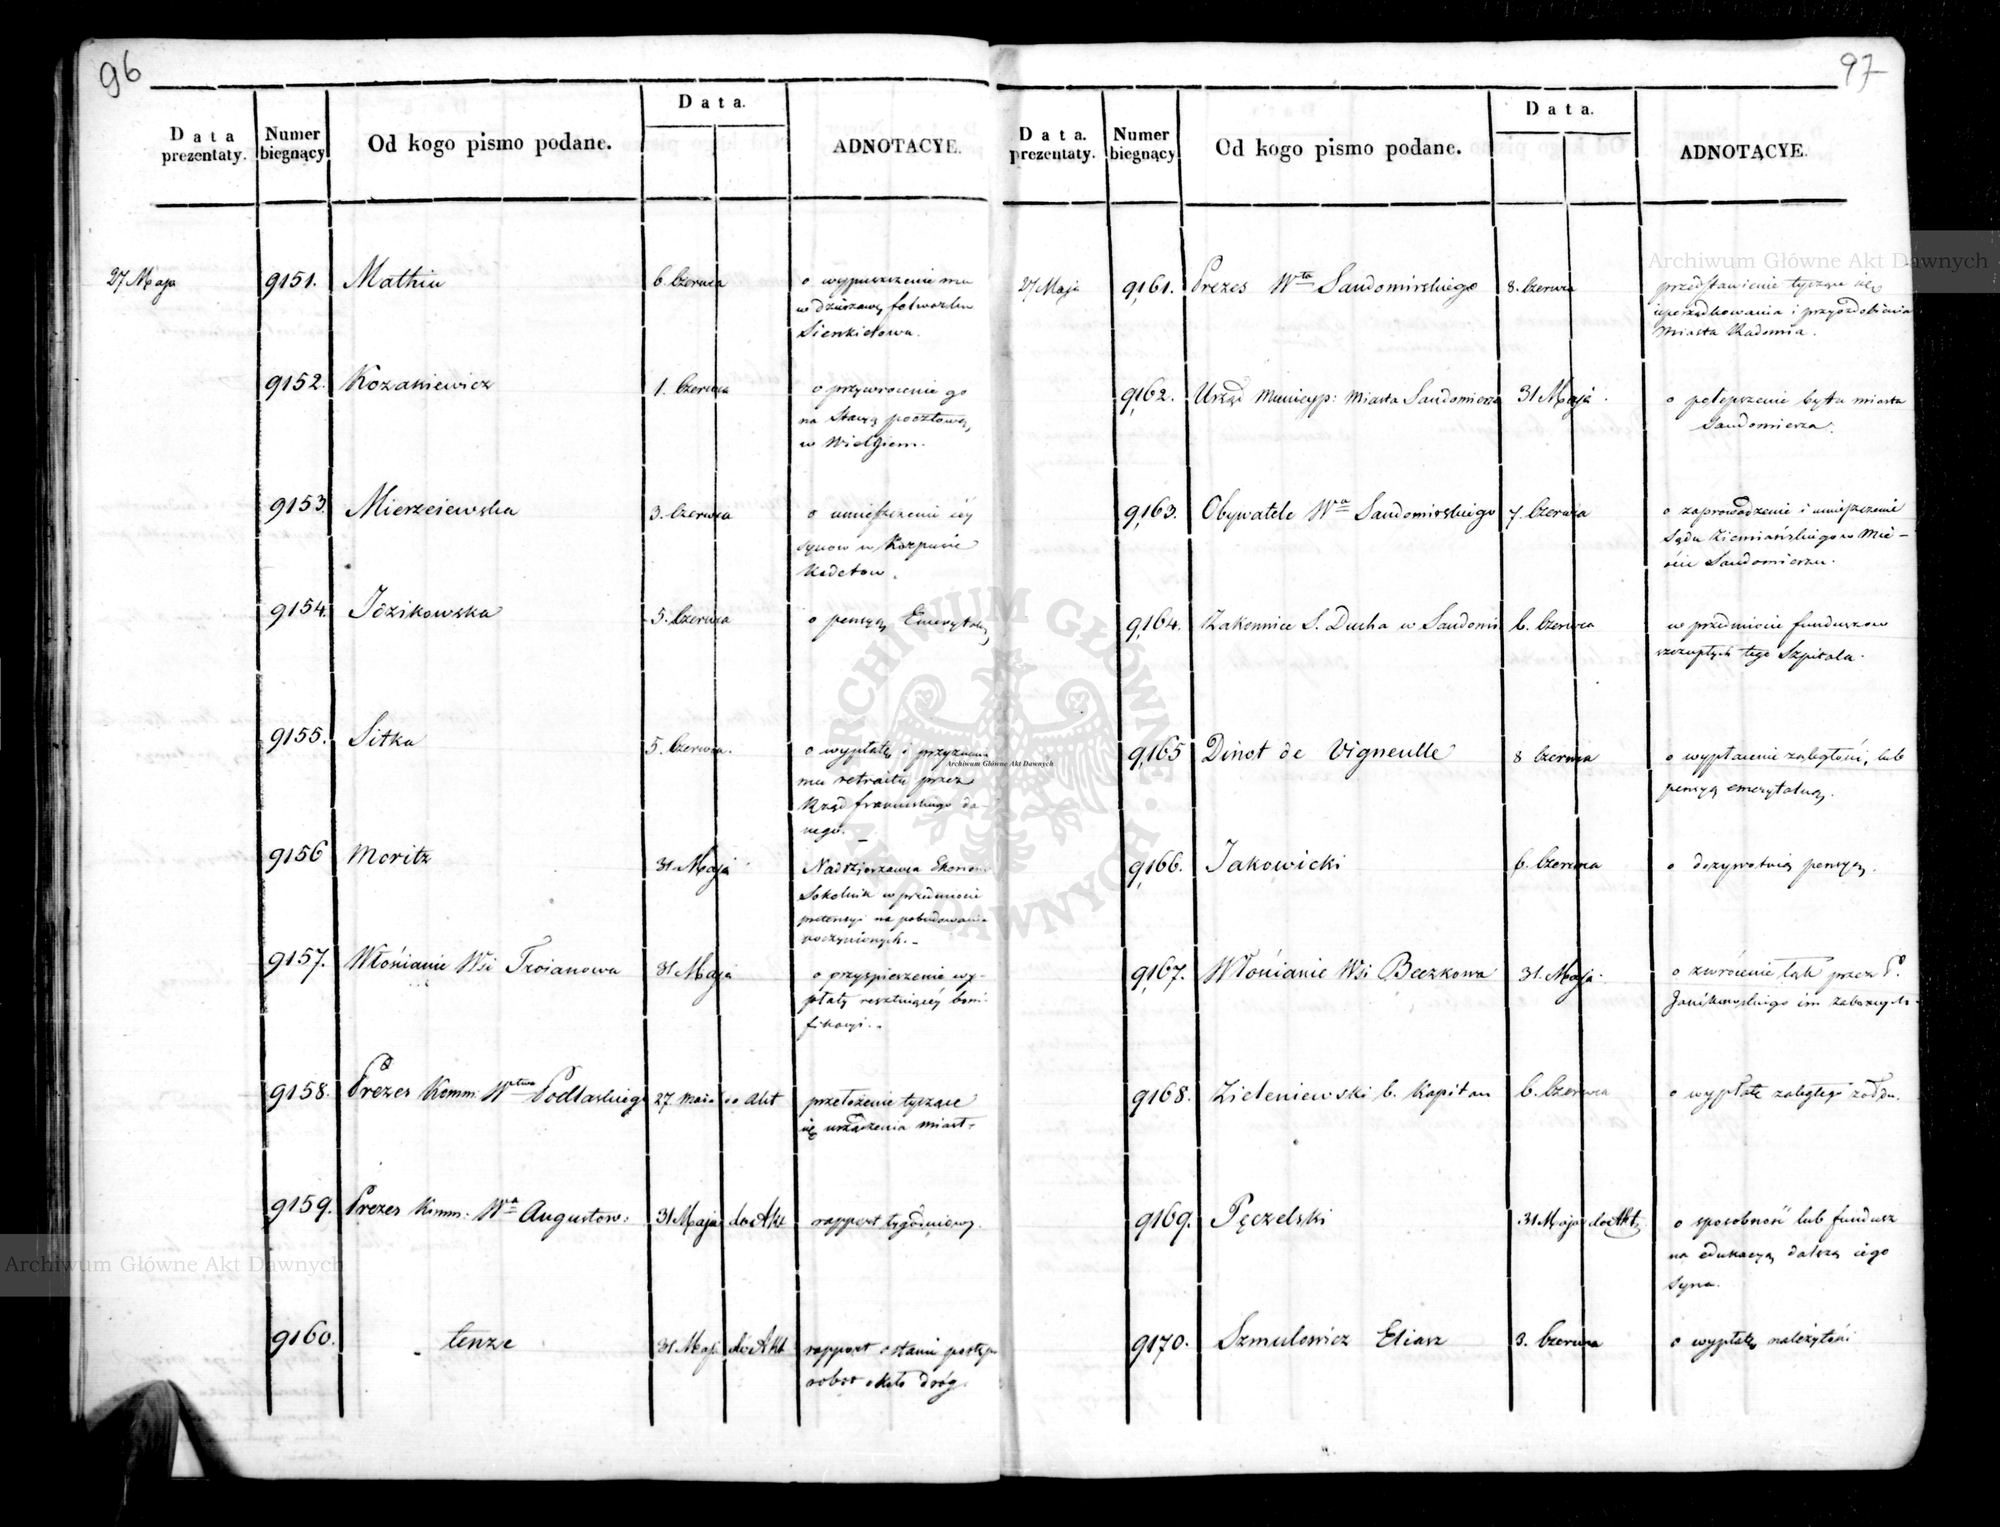 96
Data prezentaty. Numer biegnący Od kogo pismo podane. Data. ADNOTACYE.
27 Maja 9151. Mathiu 6. Czerwca o wypuszczenie mu
w dzierzawę folwarku
Sienkietowa.
9152. Kozaniewicz 1. Czerwca o przywrocenie go
na Stacyą pocztową
w Wielgiem.
9153. Mierzeiewska 3. Czerwca o umieszczenie iéy
synow w Korpusie
Kadetow.
9154. Jozikowska 5. Czerwca o pensyą Emerytalną
9155. Sitka 5. Czerwca. o wypłatę i przyznanie
mu retraitu przez
Rząd francuskiego da-
nego.
9156 Moritz 31 Maja Naddzierzawca Ekonom.
Sokolnik w przedmiocie
pretensyi na pobudowania
poczynionych.
9157. Włościanie Wsi Troianowa 31 Maja o przyspieszenie wy-
płaty resztuiącéy boni-
fikacyi.
9158. Prezes Komm: Wtwa Podlaskiego 27. Maia do Akt przełożenie tyczące
się urządzenia miast.
9159. Prezes Komm: Wa Augustow: 31 Maja do Akt rapport tygodniowy.
9160. tenze 31 Maja do Akt rapport o stanie postępu
robot około dróg.
97
Data. prezentaty. Numer biegnący Od kogo pismo podane. Data. ADNOTACYE.
27 Maja 9161. Prezes Wta Sandomirskiego 8. Czerwca przedstawienie tyczące się
uporządkowania i przyozdobienia
Miasta Radomia.
9162. Urząd Municyp: Miasta Sandomierza 31 Maja o polepszenie bytu miasta
Sandomierza.
9163. Obywatele Wa Sandomirskiego 7. Czerwca o zaprowadzenie i umieszczenie
Sądu Ziemiańskiego w Mie-
ście Sandomierzu.
9164. Zakonnice S. Ducha w Sandomir 6. Czerwca w przedmiocie funduszow
szczupłych tego Szpitala.
9165 Dinot de Vigneulle 8 Czerwca o wypłacenie zaległości, lub
pensyą emerytalną.
9166. Jakowicki 6. Czerwca o dozywotnią pensyą.
9167. Włościanie Wsi Beczkowa 31. Maja. o zwrócenie łąk przez P.
Janikowskiego im zabranych.
9168. Zieleniewski b. Kapitan 6. Czerwca o wypłatę zaległego zołdu.
9169. Pęczelski 31 Maja do Akt o sposobność lub fundusz
na edukacyą dalszą iego
syna.
9170. Szmulowicz Eliasz 3. Czerwca o wypłatę należytości
Archiwum Główne Akt Dawnych
ARCHIWUM GŁÓWNE AKT DAWNYCH
Archiwum Główne Akt Dawnych
Archiwum Główne Akt Dawnych